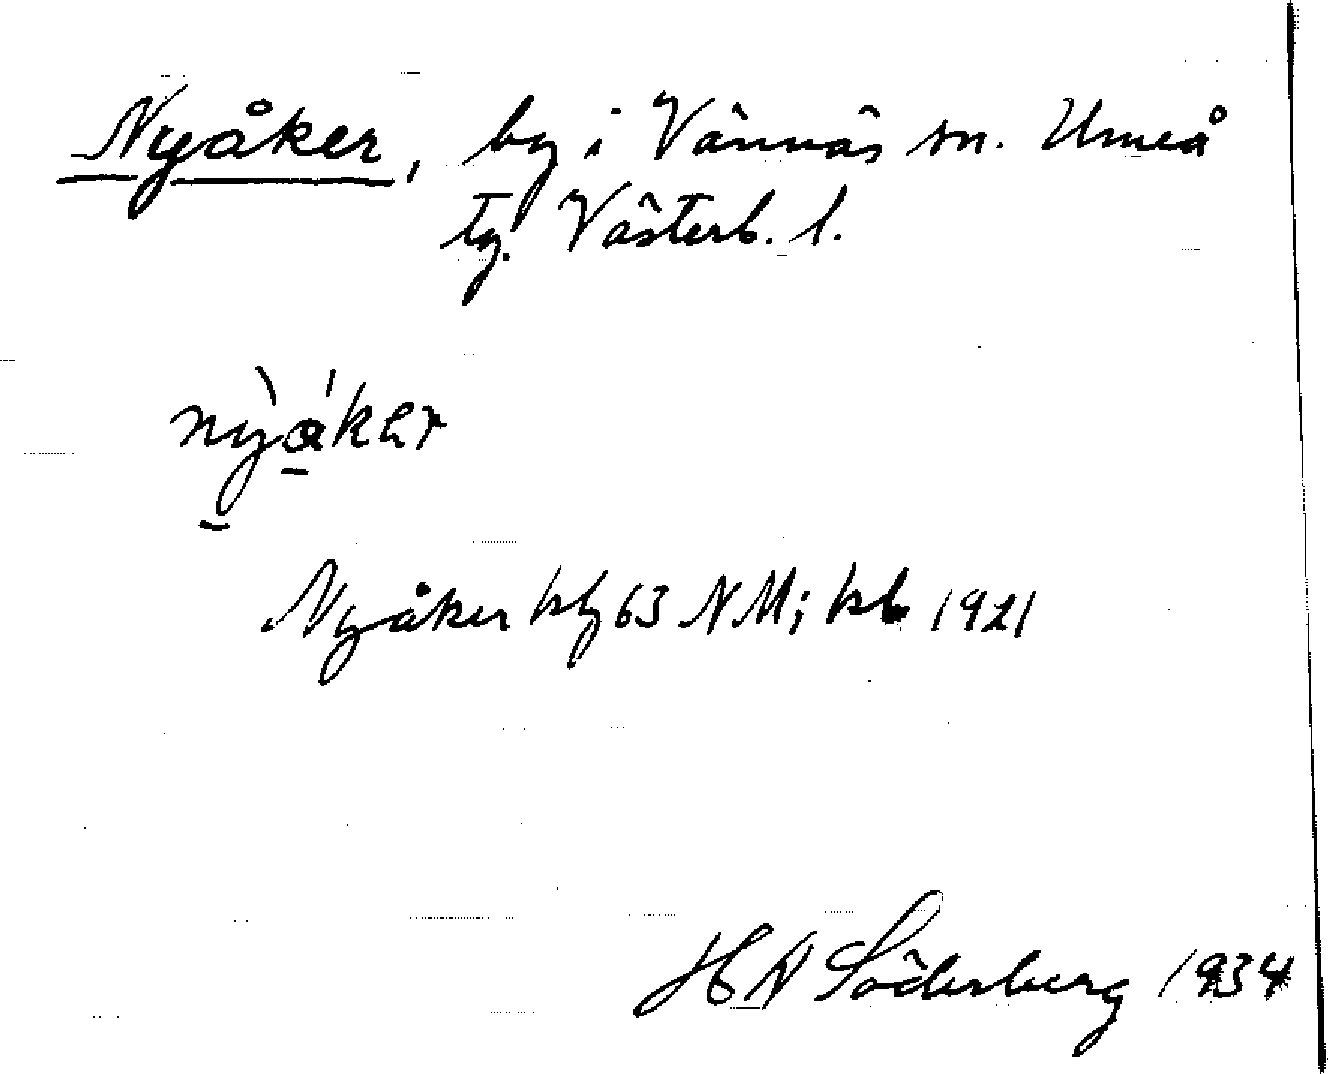 Nyåker, by i Vännäs sn. Umeå
tg. Västerb. l.
nyåker
Nyåker kbl 63 NM; kb 1921
H N Söderberg 1934